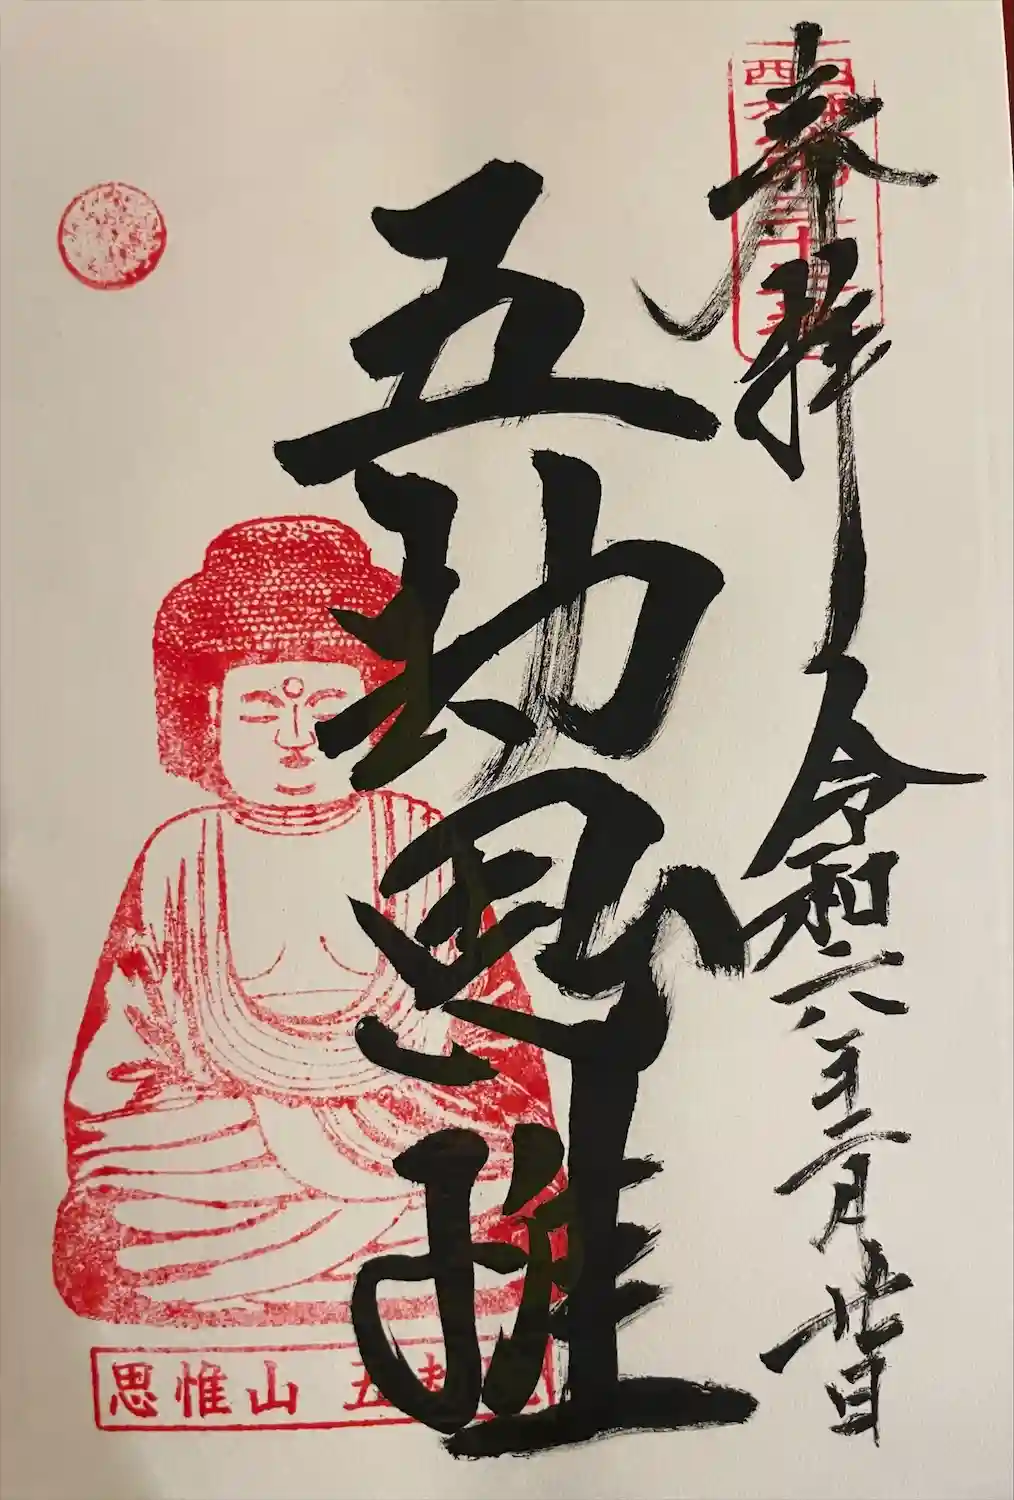 奉拝 令和六年 月 日
五劫思惟
思惟山 五劫